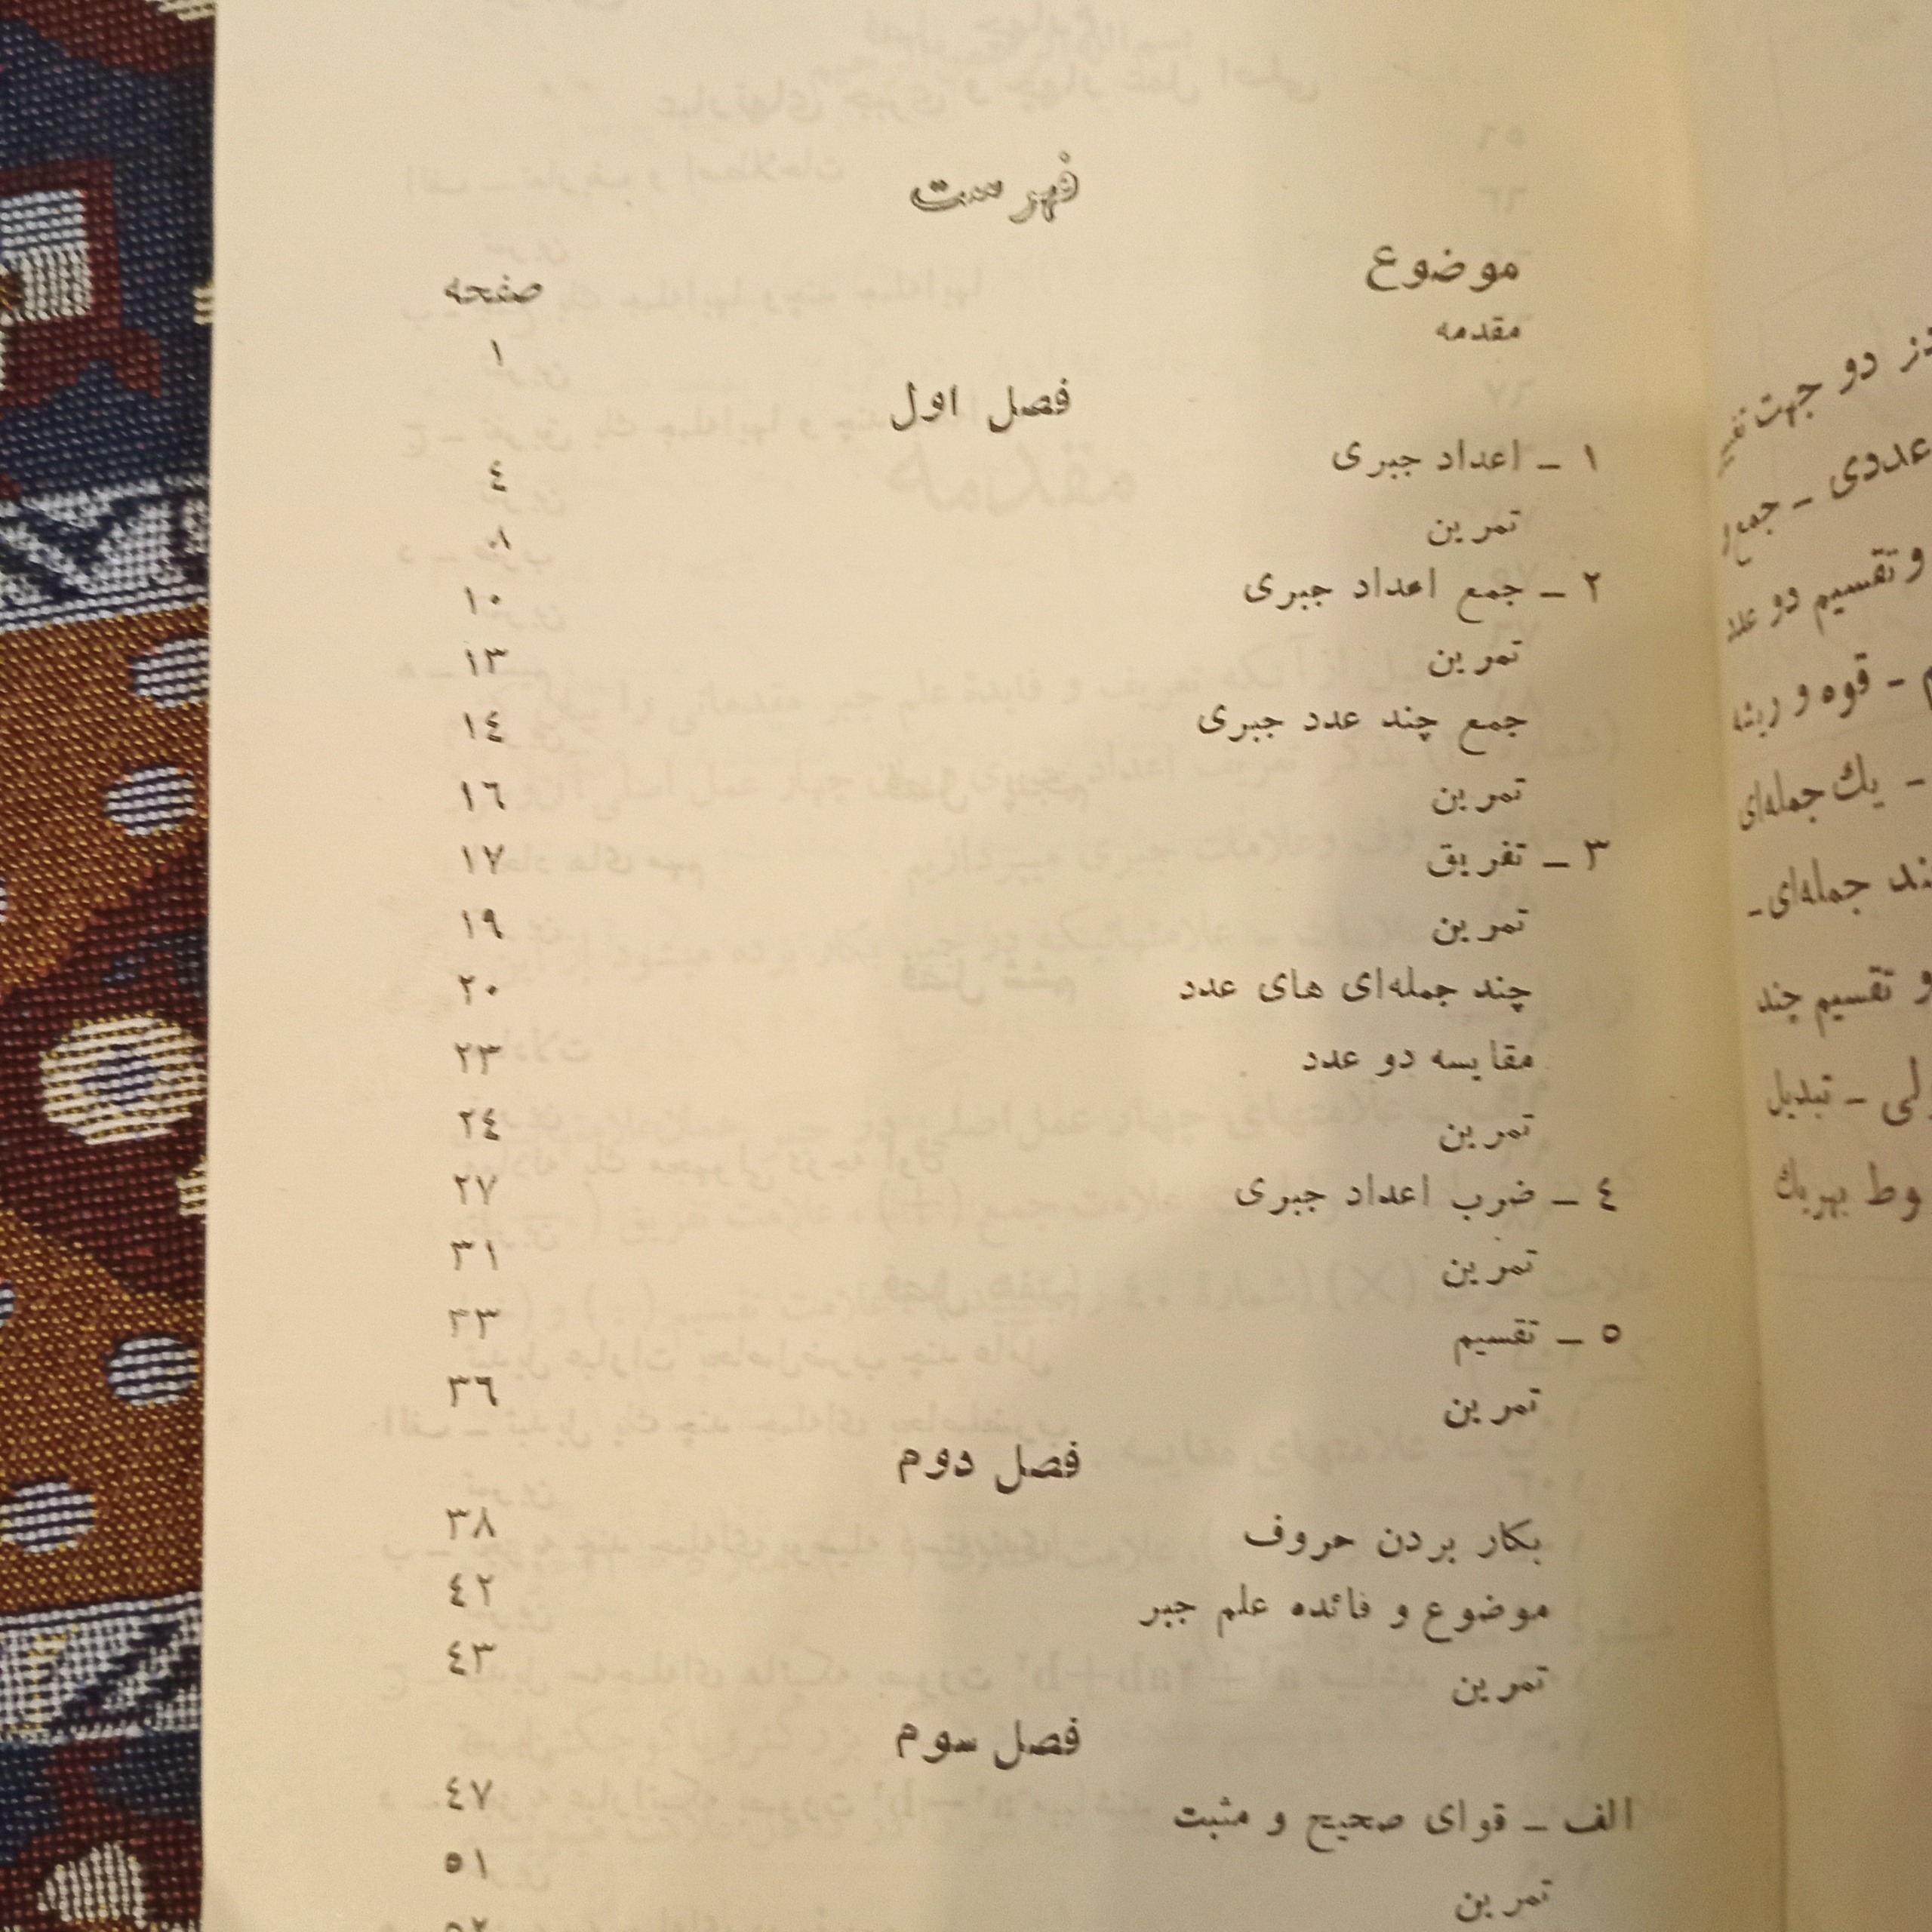 فهرست
موضوع صفحه
مقدمه ١
فصل اول
١ ـ اعداد جبری ٤
تمرین ٨
٢ ـ جمع اعداد جبری ١٠
تمرین ١٣
جمع چند عدد جبری ١٤
تمرین ١٦
٣ ـ تفریق ١٧
تمرین ١٩
چند جمله‌ای های عدد ٢٠
مقایسه دو عدد ٢٣
تمرین ٢٤
٤ ـ ضرب اعداد جبری ٢٧
تمرین ٣١
٥ ـ تقسیم ٣٣
تمرین ٣٦
فصل دوم
بکار بردن حروف ٣٨
موضوع و فائده علم جبر ٤٢
تمرین ٤٣
فصل سوم
الف ـ قوای صحیح و مثبت ٤٧
تمرین ٥١
٥٢
دو جهت
عددی ـ جمع
و تقسیم دو عدد
ـ قوه و ریشه
ـ یك جمله‌ای
جمله‌ای ـ
و تقسیم چند
ـ تبدیل
بهریك